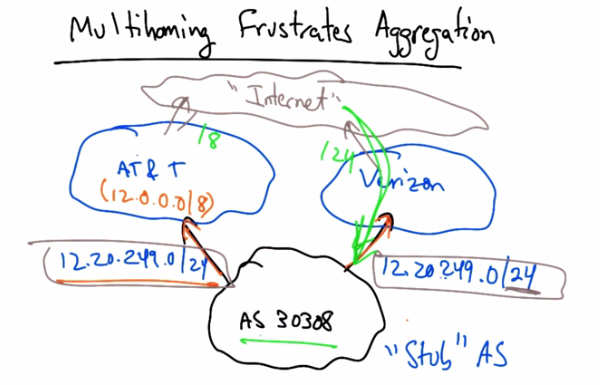 Multihoming Frustrates Aggregation
"Internet"
/8
/24
AT&T
(12.0.0.0/8)
Verizon
12.20.249.0/24
12.20.249.0/24
AS 30308
"Stub" AS